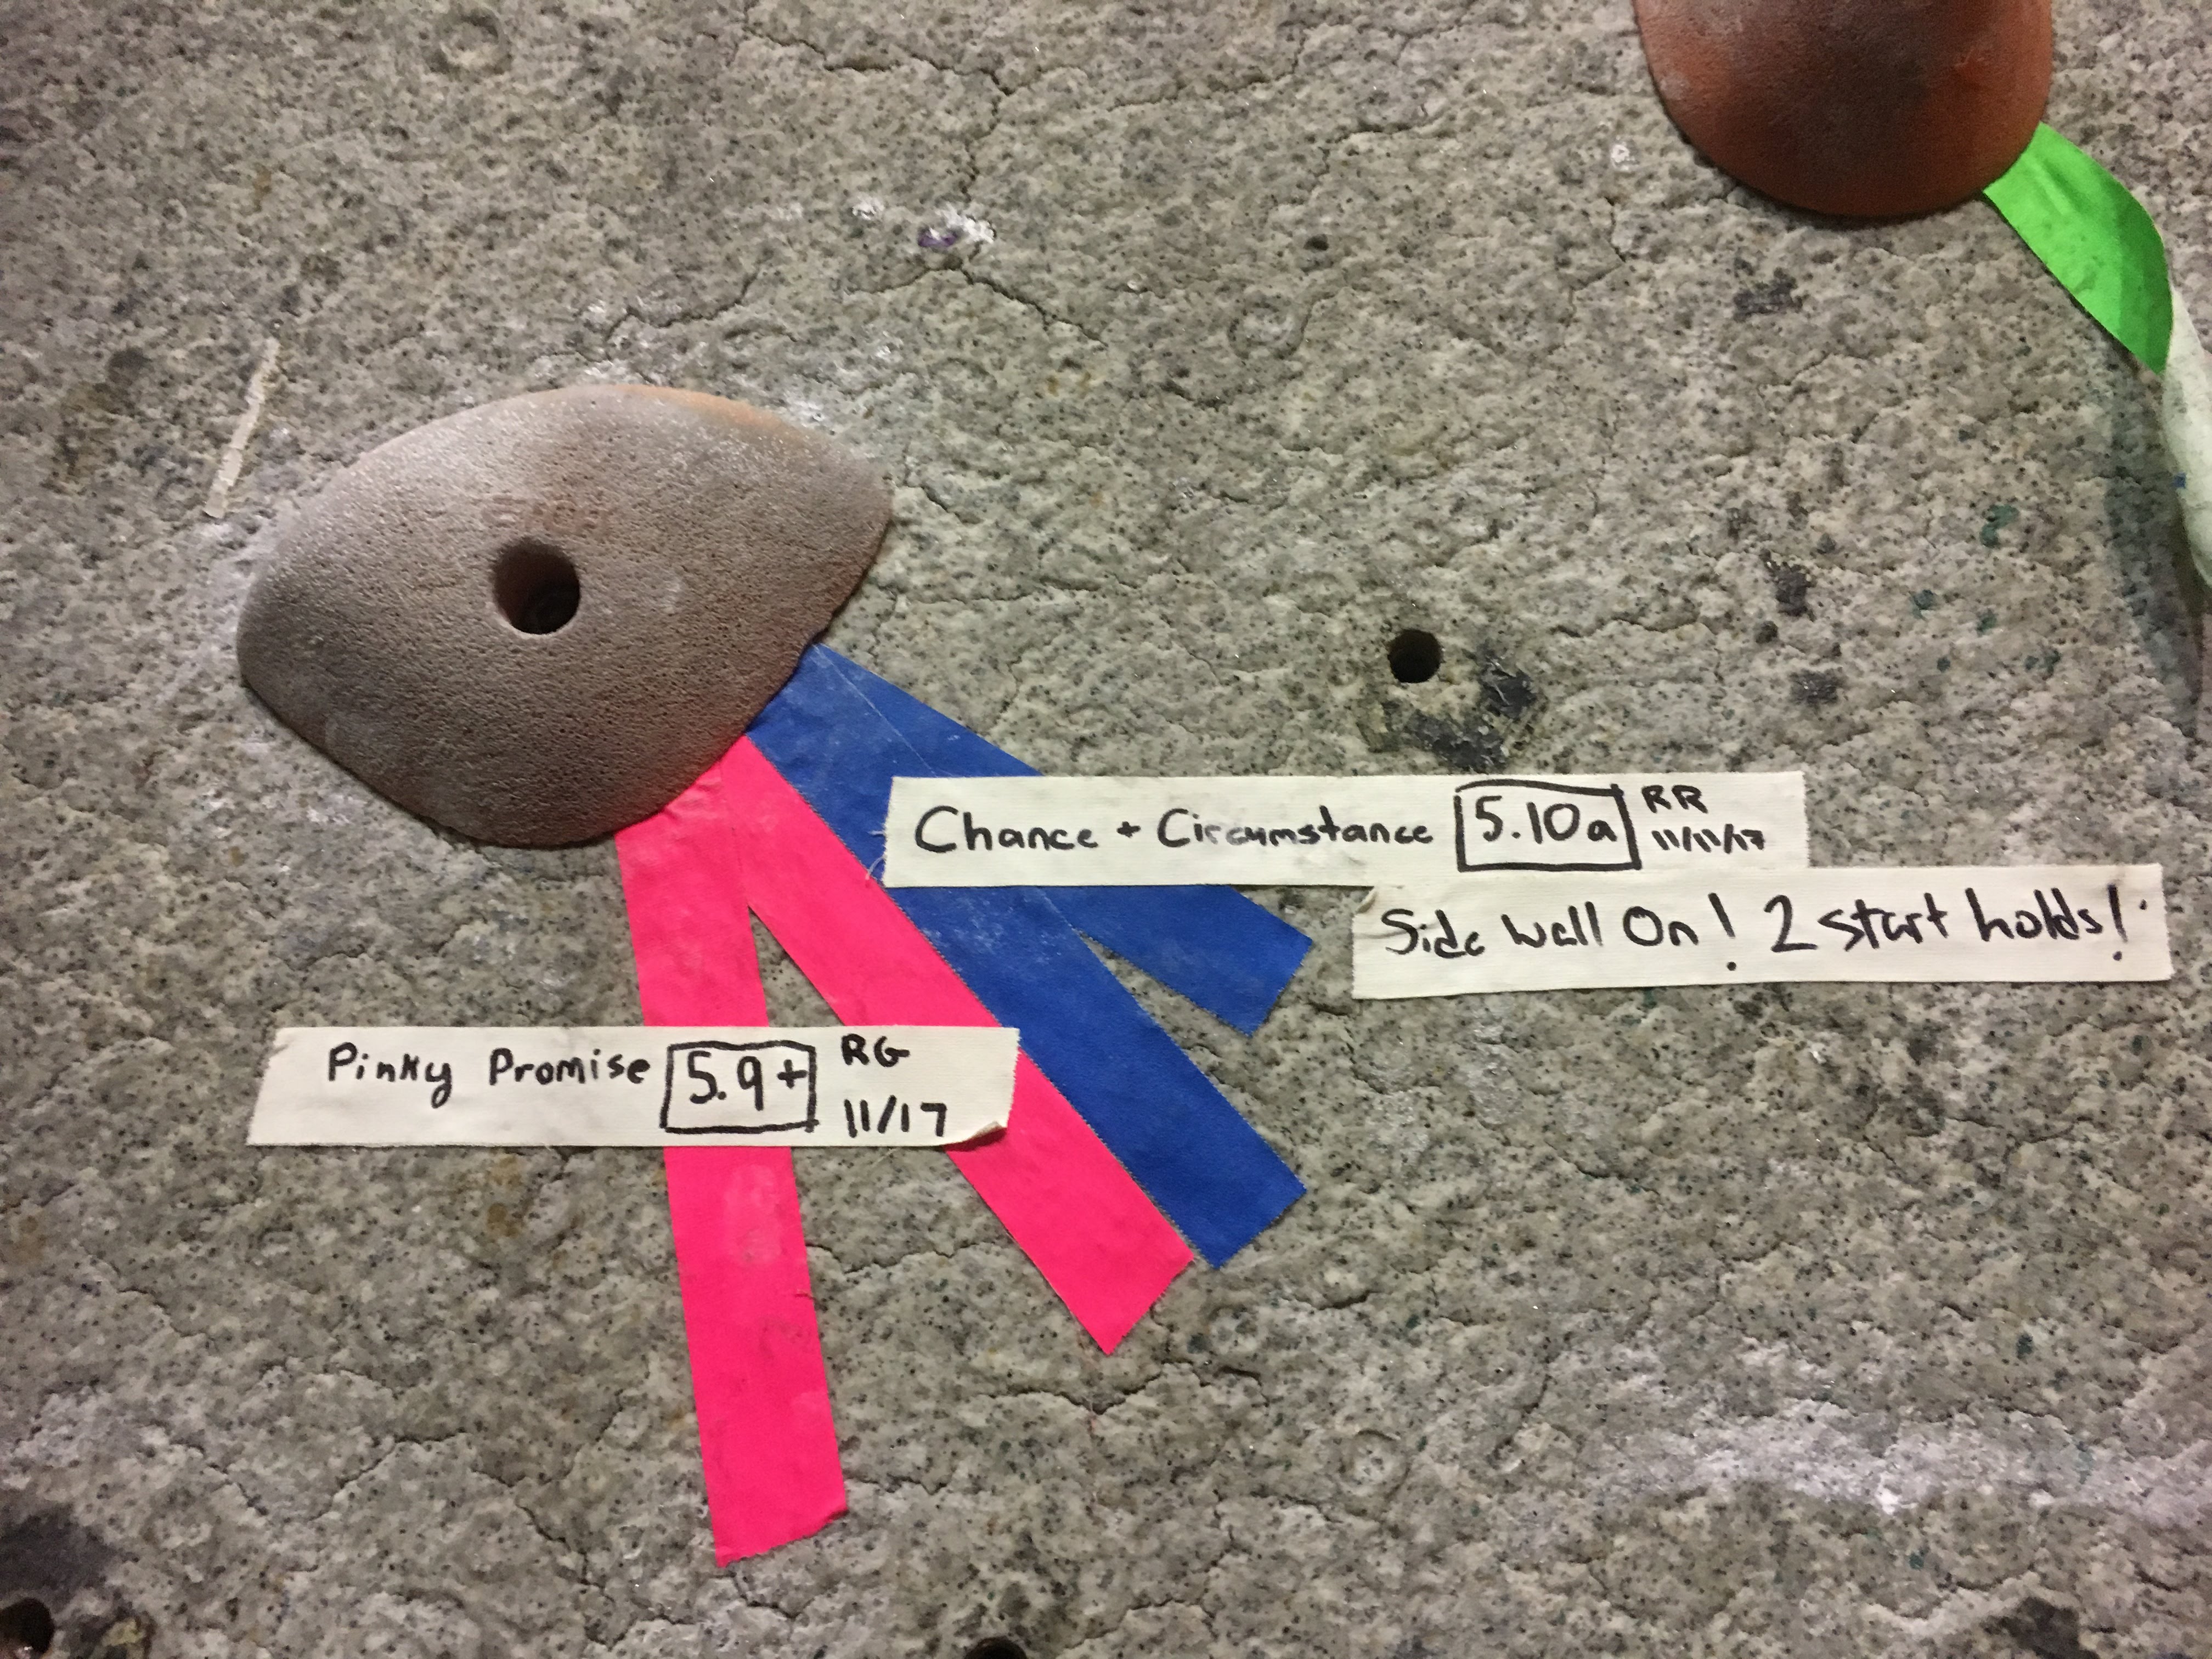 Chance + Circumstance 5.10a RR
11/11/17
Side Wall On! 2 start holds!
Pinky Promise 5.9+ RG
11/17